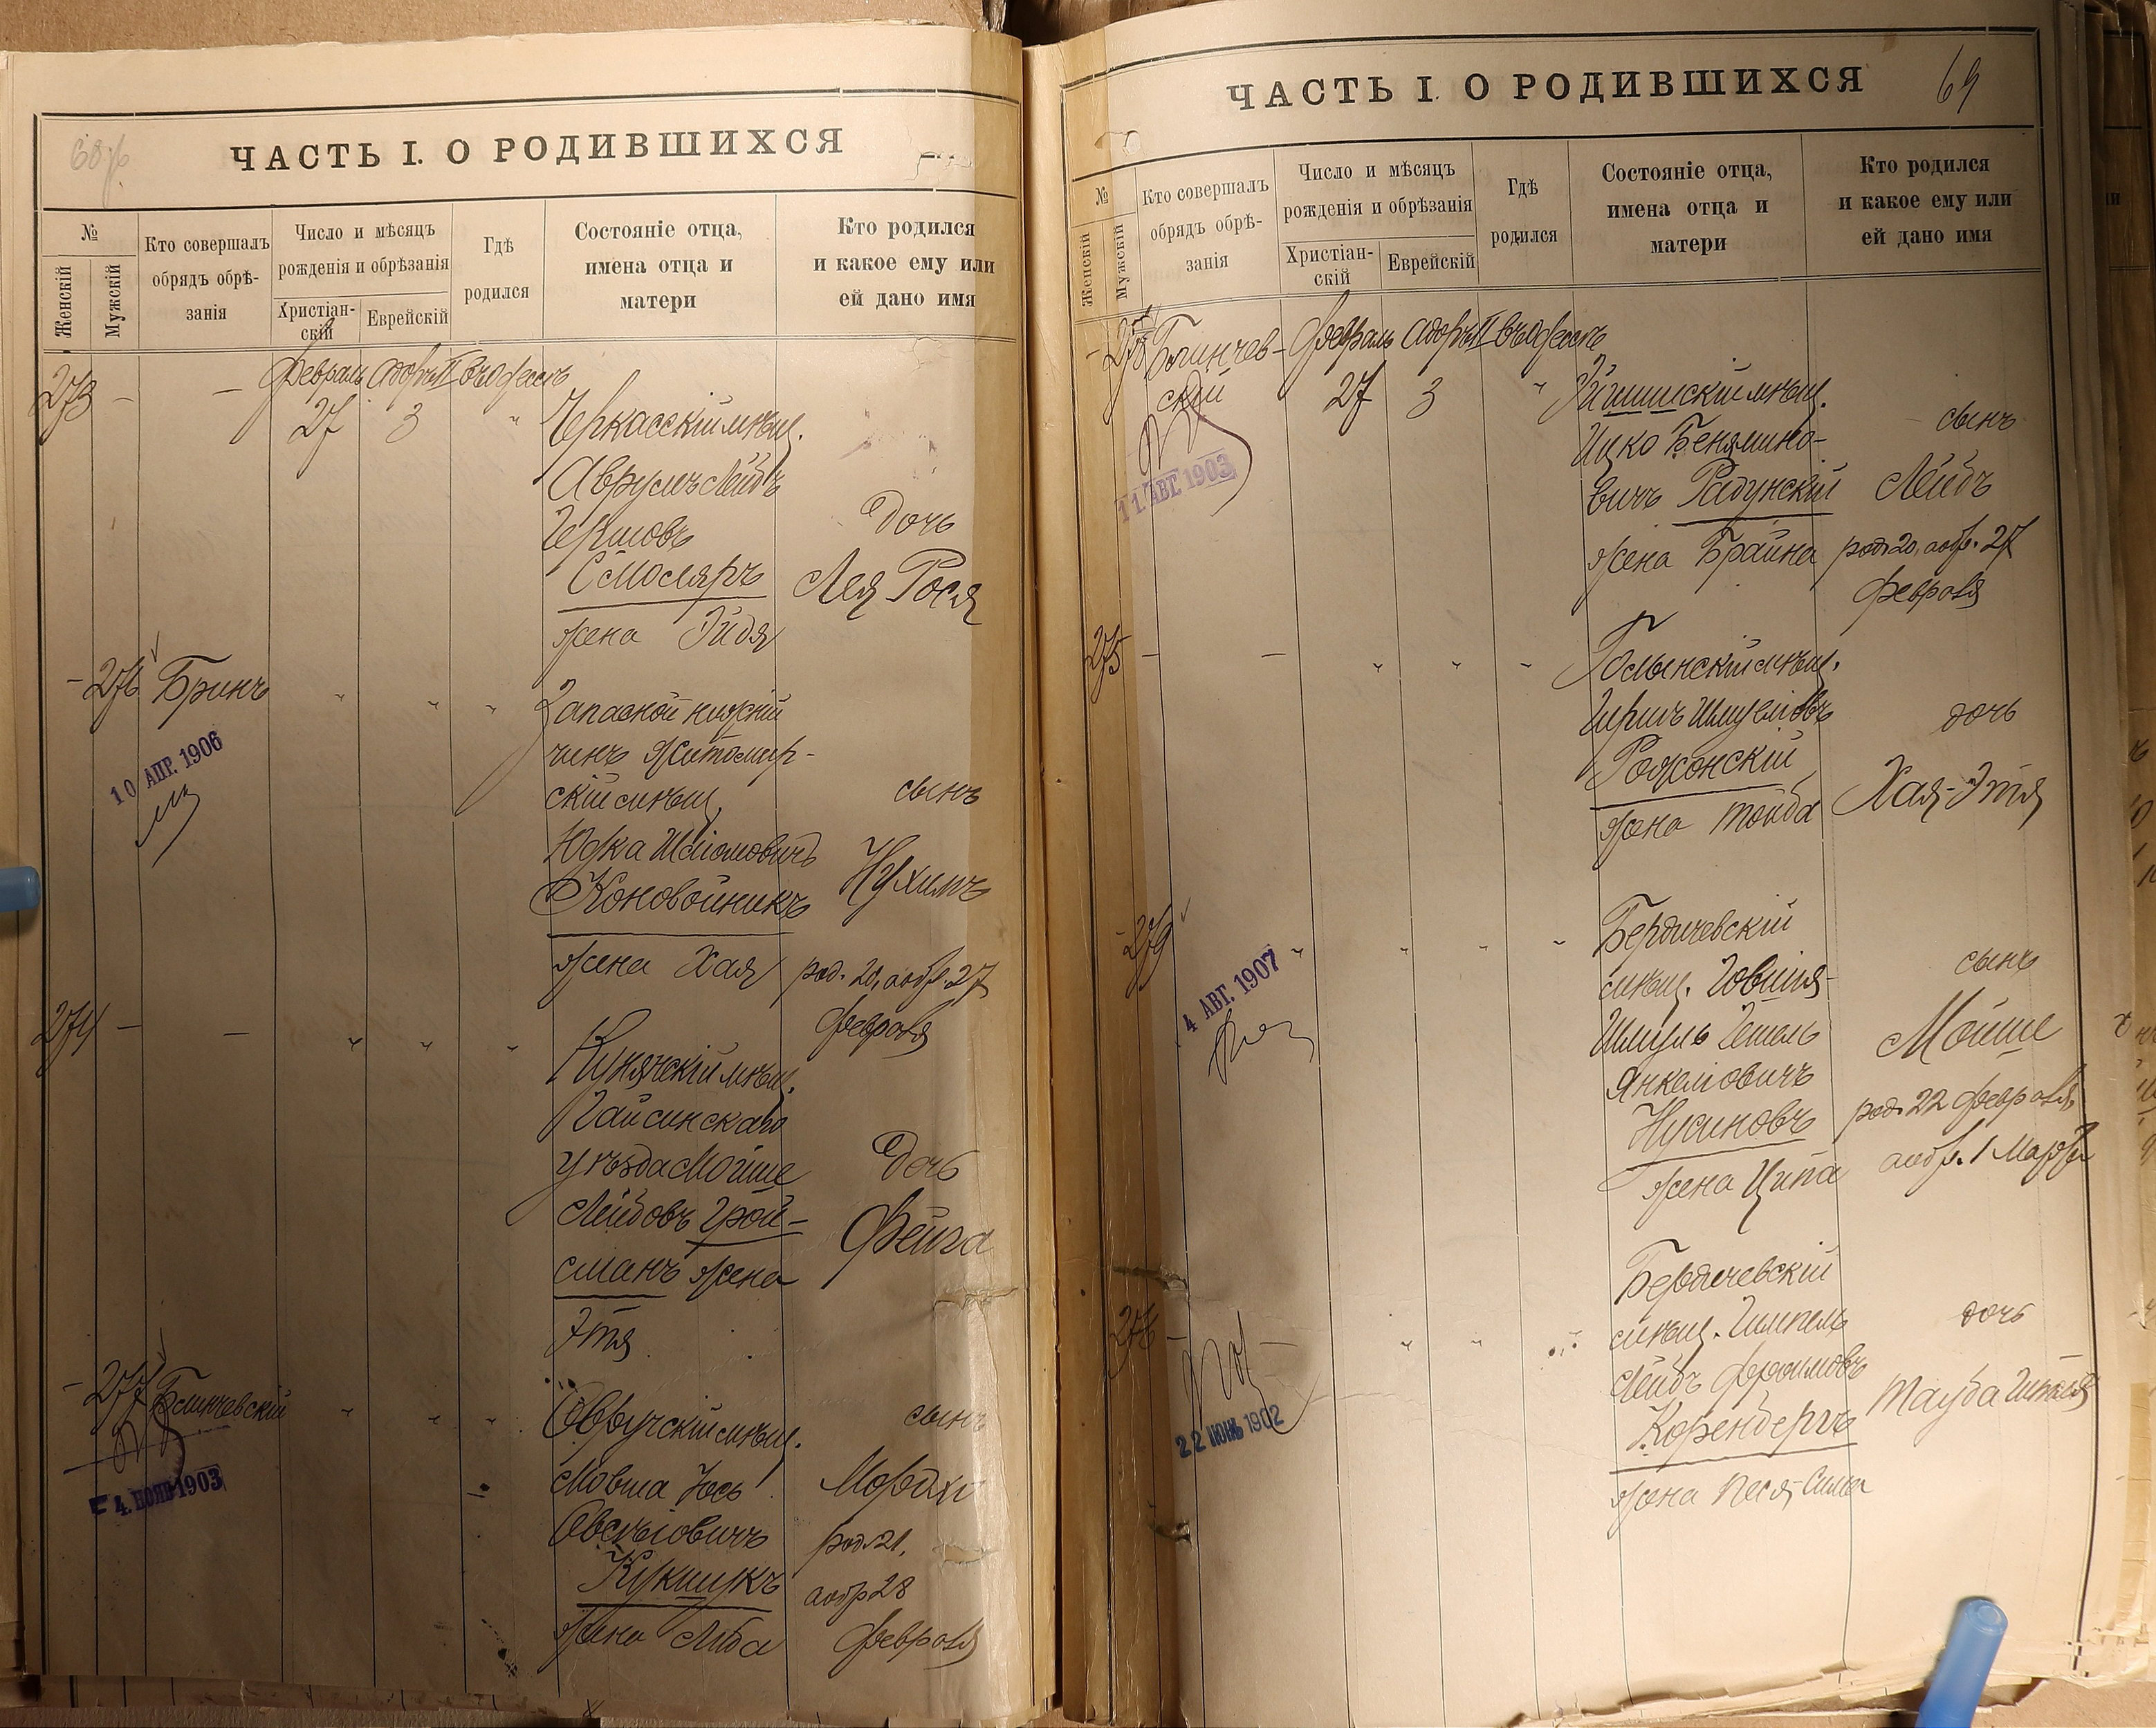 ЧАСТЬ I. О РОДИВШИХСЯ
№
Женскій
Мужскій
Кто совершалъ
обрядъ обрѣ-
занія
Число и мѣсяцъ
рожденія и обрѣзанія
Христіан-
скій
Еврейскій
Гдѣ
родился
Состояніе отца,
имена отца и
матери
Кто родился
и какое ему или
ей дано имя
273 - - Февраль Адаръ II въ Одессѣ
27 3 "
Черкасскій мѣщ.
Аврумъ Лейбъ
Гершовъ
Смоляръ
жена Эйдя
дочь
Лея Рося
- 276 Бринъ " " "
10 АПР. 1906
Запасной нижній
чинъ Житомир-
скій мѣщ.
Юдка Шліомовичъ
Коновойникъ
жена Хая
сынъ
Нухимъ
род. 20, аобр. 27
февраля
274 - - " " "
Кунянскій мѣщ.
Гайсинскаго
уѣзда Мойше
Лейбовъ Грой-
сманъ жена
Этя
дочь
Фейга
- 277 Блинчевскій " " "
4. НОЯБ 1903
Овручскій мѣщ.
Мовша Іось
Овсѣіовичъ
Кукшукъ
жена Либа
сынъ
Мордхе
род. 21,
аобр 28
февраля
ЧАСТЬ I. О РОДИВШИХСЯ
69
№
Женскій
Мужскій
Кто совершалъ
обрядъ обрѣ-
занія
Число и мѣсяцъ
рожденія и обрѣзанія
Христіан-
скій
Еврейскій
Гдѣ
родился
Состояніе отца,
имена отца и
матери
Кто родился
и какое ему или
ей дано имя
- 278 Блинчев- Февраль Адаръ II въ Одессѣ
скій 27 3 "
11 АВГ. 1903
Эйшишскій мѣщ.
Ицко Бенямино-
вичъ Радунскій
жена Брайна
сынъ
Лейбъ
род. 20, аобр. 27
февраля
275 - - " " "
Голынскій мѣщ.
Гиршъ Шмуелювъ
Рожонскій
жена Тойба
дочь
Хая-Этя
- 279 " " " "
4 АВГ. 1907
Бердичевскій
мѣщ. Говшія-
Шмуль Гешель
Янкеліовичъ
Нусиновъ
жена Ципа
сынъ
Мойше
род. 22 февраля,
аобр. 1 Марта
276 - - " "
22 НОЯБ 1902
Бердичевскій
мѣщ. Гимпель
Лейбъ Фроимовъ
Коренбергъ
жена Песя-Сима
дочь
Тауба Гителя